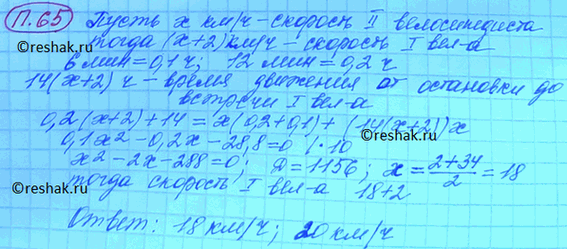 П.65
Пусть x км/ч - скорость II велосипедиста
тогда (x+2) км/ч - скорость I вел-а
6 мин = 0,1 ч; 12 мин = 0,2 ч
14(x+2) ч - время движения от остановки до
встречи I вел-а
0,2(x+2)+14 = x(0,2+0,1) + (14(x+2))x
0,1x² - 0,2x - 28,8 = 0 | · 10
x² - 2x - 288 = 0; D = 1156; x = (2+34)/2 = 18
тогда скорость I вел-а 18+2
Ответ: 18 км/ч; 20 км/ч
©Reshak.ru
©Reshak.ru
©Reshak.ru
©Reshak.ru